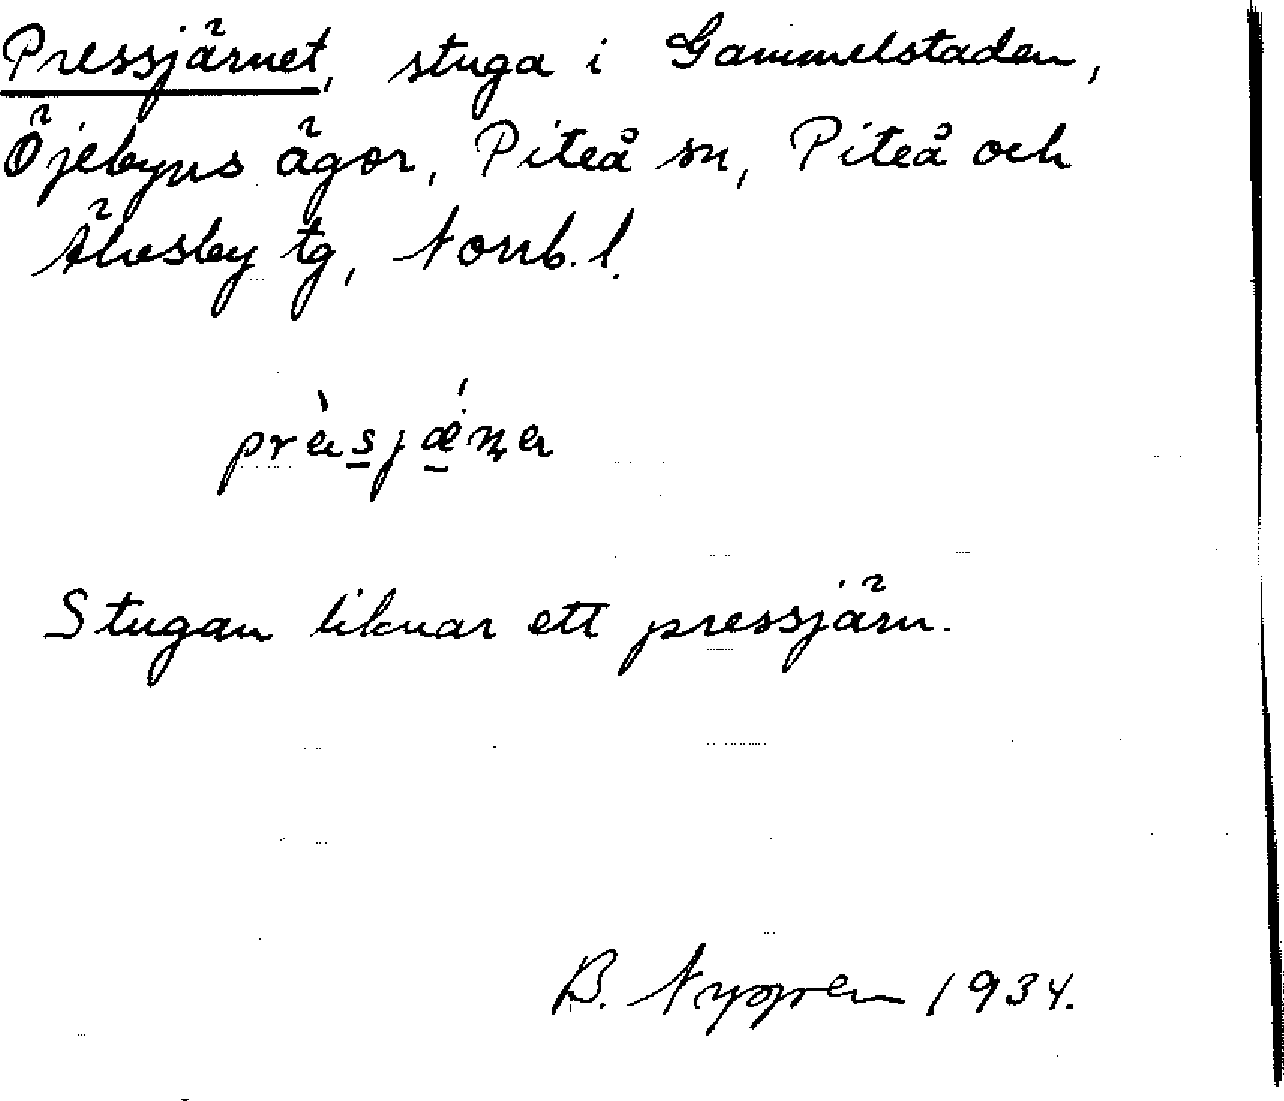 Pressjärnet, stuga i Gammelstaden,
Öjebyns ägor, Piteå sn, Piteå och
Älvsby tg, Norrb. l.
prèsjǽṇa
Stugan liknar ett pressjärn.
B. Nygren 1934.